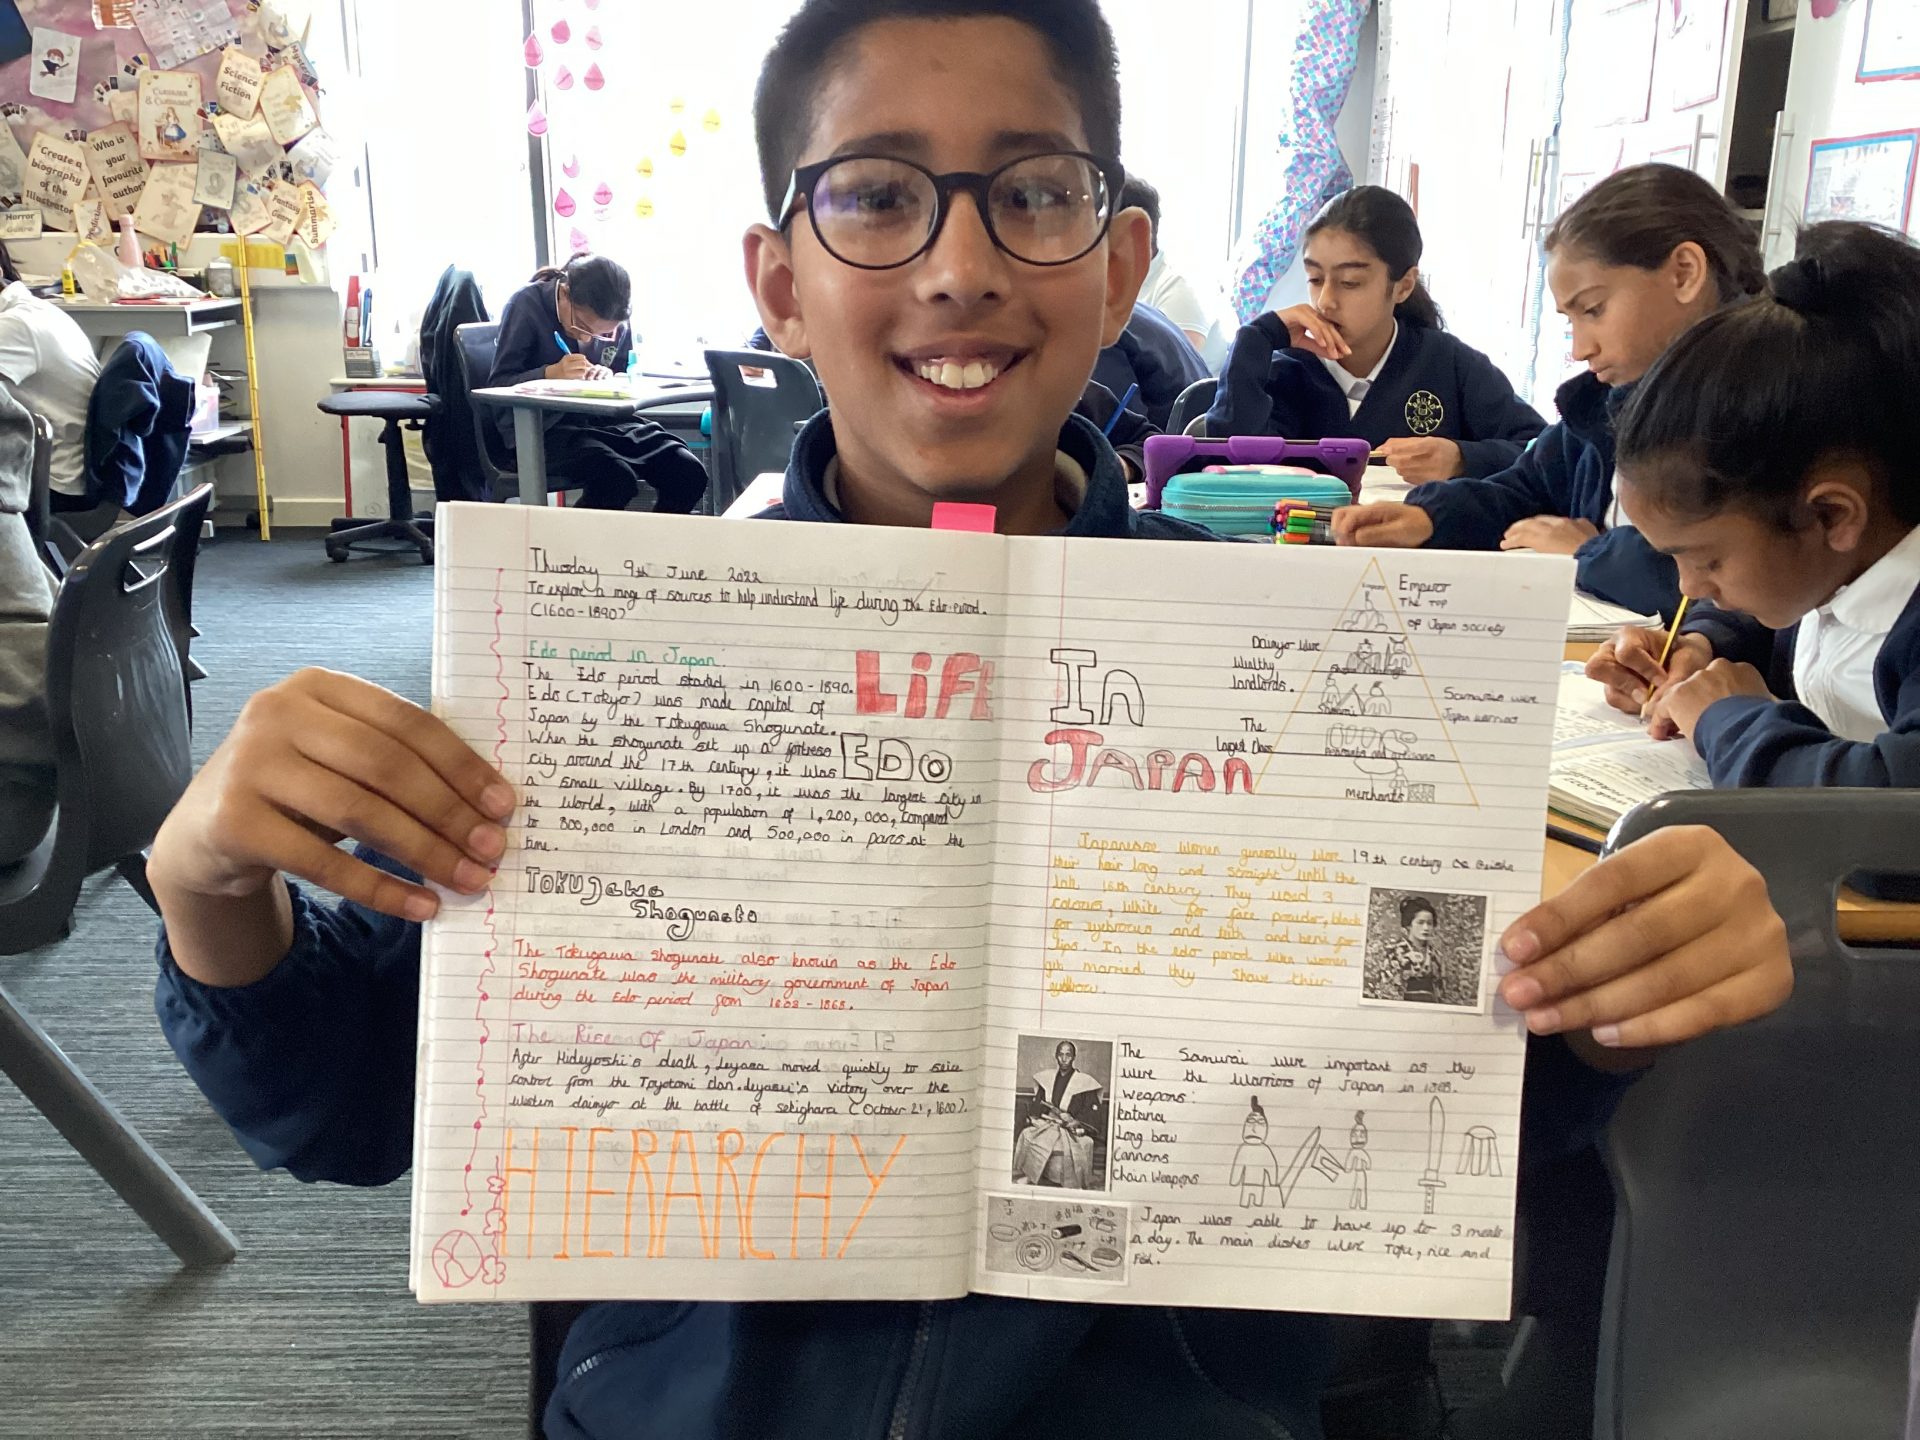 Science Fiction
Create a biography of the illustrator
Who is your favourite author?
Horror Genre
Fantasy Genre
Summarise
Thursday 9th June 2022
To explore a range of sources to help understand life during the Edo period.
(1600-1890)
Edo period in Japan
The Edo period started in 1600-1890.
Edo (Tokyo) was made capital of
Japan by the Tokugawa Shogunate.
When the shogunate set up a fortress
city around the 17th century, it was
a small village. By 1700, it was the largest city in
the world, with a population of 1,200,000, compared
to 800,000 in London and 500,000 in paris at the
time.
LiFE
EDO
Tokugawa
Shogunate
The Tokugawa shogunate also known as the Edo
Shogunate was the military government of Japan
during the Edo period from 1603-1868.
The Rise Of Japan
After Hideyoshi's death, Ieyasu moved quickly to seize
control from the Toyotomi clan. Ieyasu's victory over the
western daimyo at the battle of sekighara (October 21, 1600).
HIERARCHY
In
JAPAN
Emperor
Emperor
The top
of Japan society
Daimyo were
wealthy
landlords.
Samurai were
Japan warriors
The
Largest Class
Merchants
Japanese women generally wore
their hair long and straight until the
late 16th century. They used 3
colours, white for face powder, black
for eyebrows and teeth and beni for
lips. In the edo period when women
get married they shave thier
eyebrow.
19th century
The Samurai were important as they
were the warriors of Japan in
weapons:
katana
Long bow
cannons
Chain weapons
Japan was able to have up to 3 meals
a day. The main dishes were Tofu, rice and
Fish.